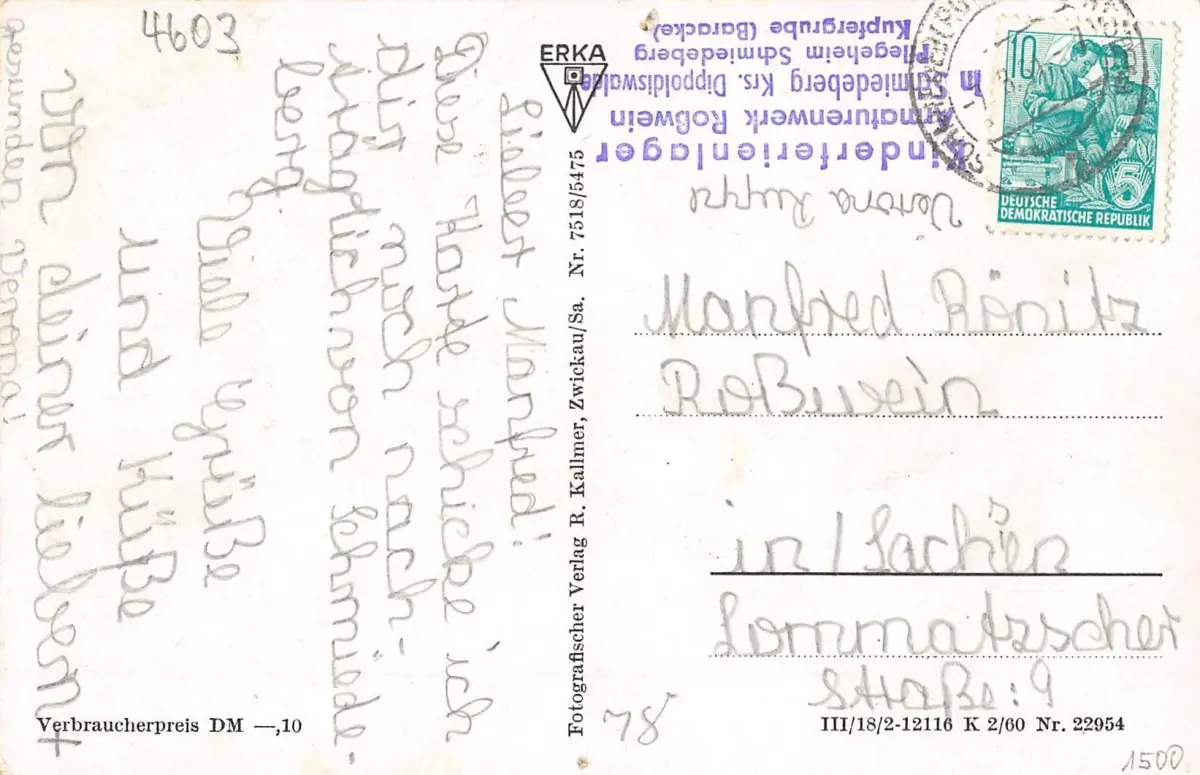 4603
Lieber Manfred!
Diese Karte schicke ich
Dir noch nach-
träglich von Schmiede-
berg.
Viele Grüße
und Küße
Von deiner lieben
gesunden Verona!
ERKA
Fotografischer Verlag R. Kallmer, Zwickau/Sa. Nr. 7518/5475
Verbraucherpreis DM —,10
Kinderferienlager
Armaturenwerk Roßwein
in Schmiedeberg Krs. Dippoldiswalde
Pflegeheim Schmiedeberg
Kupfergrube (Baracke)
Verona
10
5
DEUTSCHE
DEMOKRATISCHE REPUBLIK
Manfred Rönitz
Roßwein
in/Sachsen
Lommatzscher
Straße: 9
78
III/18/2-12116 K 2/60 Nr. 22954
1500